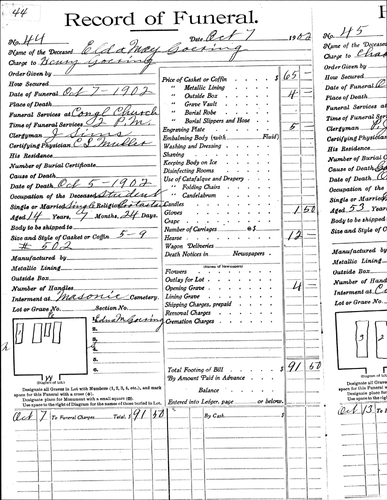 44
Record of Funeral.
No. 44 Date Oct 7 1902
Name of the Deceased Elda May Goesing
Charge to Henry Goesing
Order Given by
How Secured
Date of Funeral Oct 7-1902
Place of Death
Funeral Services at Congl Church
Time of Funeral Services 2 P.M.
Clergyman J Sims
Certifying Physician C E Muller
His Residence
Number of Burial Certificate
Cause of Death
Date of Death Oct 5-1902
Occupation of the Deceased Student
Single or Married Single Religion Protestant
Aged 14 Years, 9 Months, 24 Days.
Body to be shipped to
Size and Style of Casket or Coffin 5-9
# 502
Manufactured by
Metallic Lining
Outside Box
Number of Handles
Interment at Masonic Cemetery.
Lot or Grave No. Section No.
1.
2.
3.
4.
5.
6.
(Diagram of Lot.)
Designate all Graves in Lot with Numbers (1, 2, 3, 4, etc.), and mark
space for this Funeral with a cross (+).
Designate place for Monument with a small square (□).
Use space to the right of Diagram for the names of those buried in Lot.
Price of Casket or Coffin $ 65 —
" Metallic Lining
" Outside Box 4 —
" Grave Vault
" Burial Robe
" Burial Slippers and Hose
Engraving Plate 5 —
Embalming Body (with Fluid)
Washing and Dressing
Shaving
Keeping Body on Ice
Disinfecting Rooms
Use of Catafalque and Drapery
" Folding Chairs
" Candelabrum
Candles
Gloves 1 50
Crape
Number of Carriages @ $
Hearse 12 —
Wagon Deliveries
Death Notices in Newspapers
Flowers
Outlay for Lot
Opening Grave 4 —
Lining Grave
Shipping Charges, prepaid
Removal Charges
Cremation Charges
Total Footing of Bill $ 91 50
By Amount Paid in Advance
Balance
Entered into Ledger, page or below.
Oct 7 To Funeral Charges Total. $ 91 50 By Cash $
No. 45
Name of the Deceased
Charge to
Order Given by
How Secured
Date of Funeral
Place of Death
Funeral Services
Time of Funeral
Clergyman
Certifying Physician
His Residence
Number of Burial
Cause of Death
Date of Death
Occupation of the
Single or Married
Aged 53 Years
Body to be shipped
Size and Style of
Manufactured by
Metallic Lining
Outside Box
Number of Handles
Interment at
Lot or Grave No.
(Diagram of Lot.)
Oct 13 To